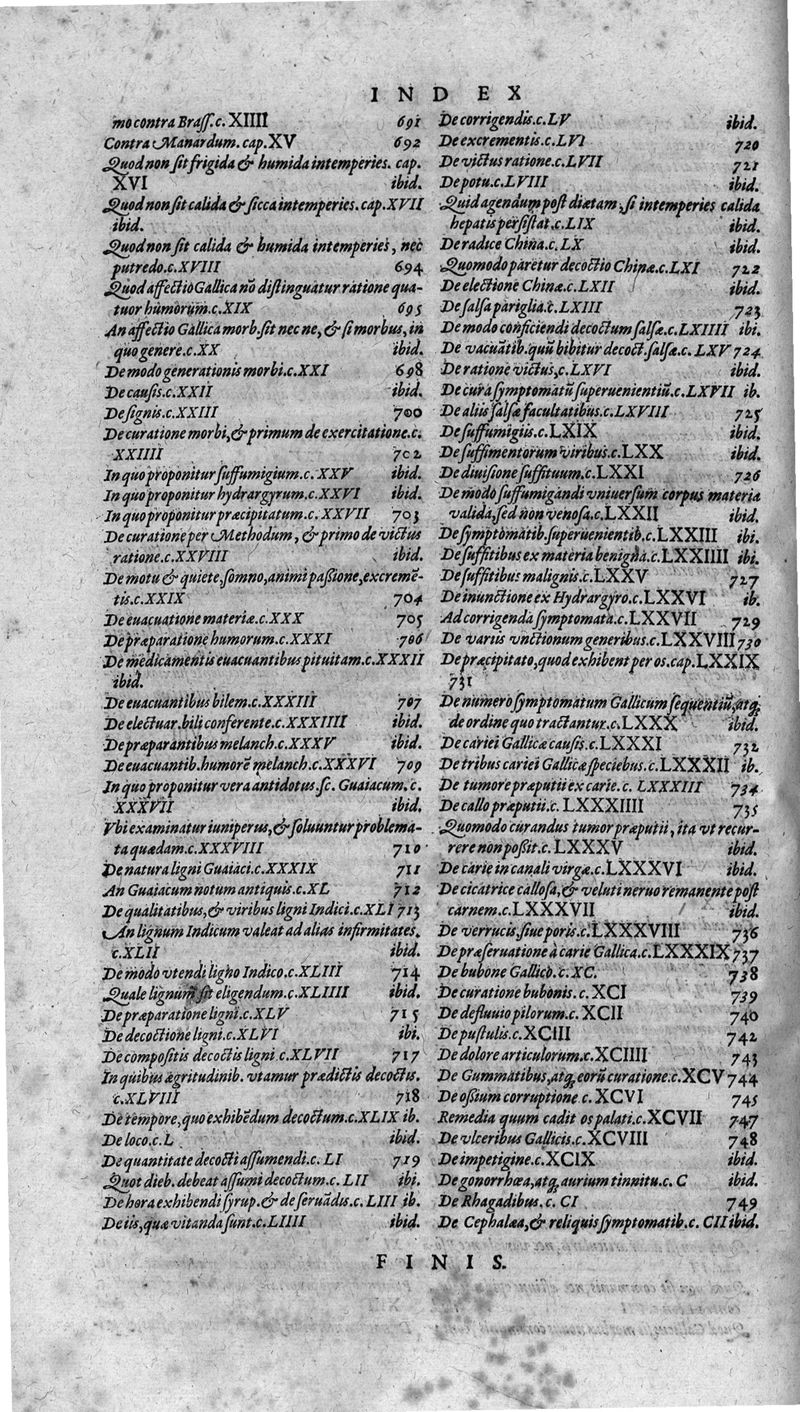 INDEX
mo contra Braſſ. c. XIIII 691
Contra Manardum. cap. XV 692
Quod non ſit frigida & humida intemperies. cap.
XVI ibid.
Quod non ſit calida & ſicca intemperies. cap. XVII
ibid.
Quod non ſit calida & humida intemperies, nec
putredo. c. XVIII 694
Quod affectio Gallica nō diſtinguatur ratione qua-
tuor humorum. c. XIX 695
An affectio Gallica morb. ſit nec ne, & ſi morbus, in
quo genere. c. XX ibid.
De modo generationis morbi. c. XXI 698
De cauſis. c. XXII ibid.
De ſignis. c. XXIII 700
De curatione morbi, & primum de exercitatione. c.
XXIIII 702
In quo proponitur ſuffumigium. c. XXV ibid.
In quo proponitur hydrargyrum. c. XXVI ibid.
In quo proponitur præcipitatum. c. XXVII 703
De curatione per Methodum, & primo de victus
ratione. c. XXVIII ibid.
De motu & quiete, ſomno, animi paßione, excremē-
tis. c. XXIX 704
De euacuatione materiæ. c. XXX 705
De præparatione humorum. c. XXXI 706
De medicamentis euacuantibus pituitam. c. XXXII
ibid.
De euacuantibus bilem. c. XXXIII 707
De electuar. bili conferente. c. XXXIIII ibid.
De præparantibus melanch. c. XXXV ibid.
De euacuantib. humorē melanch. c. XXXVI 709
In quo proponitur vera antidotus. ſc. Guaiacum. c.
XXXVII ibid.
Vbi examinatur iuniperus, & ſoluuntur problema-
ta quædam. c. XXXVIII 710
De natura ligni Guaiaci. c. XXXIX 711
An Guaiacum notum antiquis. c. XL 712
De qualitatibus, & viribus ligni Indici. c. XLI 713
An lignum Indicum valeat ad alias infirmitates.
c. XLII ibid.
De modo vtendi ligno Indico. c. XLIII 714
Quale lignum ſit eligendum. c. XLIIII ibid.
De præparatione ligni. c. XLV 715
De decoctione ligni. c. XLVI ibi.
De compoſitis decoctis ligni. c. XLVII 717
In quibus ægritudinib. vtamur prædictis decoctis.
c. XLVIII 718
De tempore, quo exhibēdum decoctum. c. XLIX ib.
De loco. c. L ibid.
De quantitate decocti aſſumendi. c. LI 719
Quot dieb. debeat aſſumi decoctum. c. LII ibi.
De hora exhibendi ſyrup. & de ſeruādis. c. LIII ib.
De iis, quæ vitanda ſunt. c. LIIII ibid.
De corrigendis. c. LV ibid.
De excrementis. c. LVI 720
De victus ratione. c. LVII 721
De potu. c. LVIII ibid.
Quid agendum poſt diætam, ſi intemperies calida
hepatis perſiſtat. c. LIX ibid.
De radice China. c. LX ibid.
Quomodo paretur decoctio Chinæ. c. LXI 722
De electione Chinæ. c. LXII ibid.
De ſalſa pariglia. c. LXIII 723
De modo conficiendi decoctum ſalſæ. c. LXIIII ibi.
De vacuatib. quū bibitur decoct. ſalſæ. c. LXV 724
De ratione victus, c. LXVI ibid.
De cura ſymptomatū ſuperuenientiū. c. LXVII ib.
De aliis ſalſæ facultatibus. c. LXVIII 725
De ſuffumigiis. c. LXIX ibid.
De ſuffimentorum viribus. c. LXX ibid.
De diuiſione ſuffituum. c. LXXI 726
De modo ſuffumigandi vniuerſum corpus materia
valida, ſed non venoſa. c. LXXII ibid.
De ſymptomatib. ſuperuenientib. c. LXXIII ibi.
De ſuffitibus ex materia benigna. c. LXXIIII ibi.
De ſuffitibus malignis. c. LXXV 727
De inunctione ex Hydrargyro. c. LXXVI ib.
Ad corrigenda ſymptomata. c. LXXVII 729
De variis vnctionum generibus. c. LXXVIII 730
De præcipitato, quod exhibent per os. cap. LXXIX
731
De numero ſymptomatum Gallicum ſequentiū, atq;
de ordine quo tractantur. c. LXXX ibid.
De cariei Gallicæ cauſis. c. LXXXI 732
De tribus cariei Gallicæ ſpeciebus. c. LXXXII ib.
De tumore præputii ex carie. c. LXXXIII 734
De callo præputii. c. LXXXIIII 735
Quomodo curandus tumor præputii, ita vt recur-
rere non poßit. c. LXXXV ibid.
De carie in canali virgæ. c. LXXXVI ibid.
De cicatrice calloſa, & veluti neruo remanente poſt
carnem. c. LXXXVII ibid.
De verrucis, ſiue poris. c. LXXXVIII 736
De præſeruatione à carie Gallica. c. LXXXIX 737
De bubone Gallico. c. XC. 738
De curatione bubonis. c. XCI 739
De defluuio pilorum. c. XCII 740
De puſtulis. c. XCIII 742
De dolore articulorum. c. XCIIII 743
De Gummatibus, atq; eorū curatione. c. XCV 744
De oßium corruptione c. XCVI 745
Remedia quum cadit os palati. c. XCVII 747
De vlceribus Gallicis. c. XCVIII 748
De impetigine. c. XCIX ibid.
De gonorrhœa, atq; aurium tinnitu. c. C ibid.
De Rhagadibus. c. CI 749
De Cephalæa, & reliquis ſymptomatib. c. CII ibid.
FINIS.